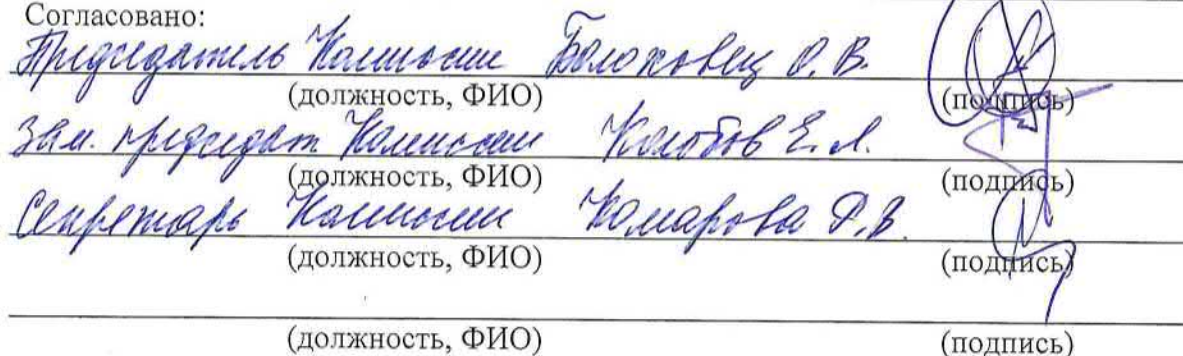 Согласовано:
Председатель Комиссии Белоховец О. В.
(должность, ФИО) (подпись)
Зам. председат Комиссии Колобов Е. А.
(должность, ФИО) (подпись)
Секретарь Комиссии Комарова Р. В.
(должность, ФИО) (подпись)
(должность, ФИО) (подпись)